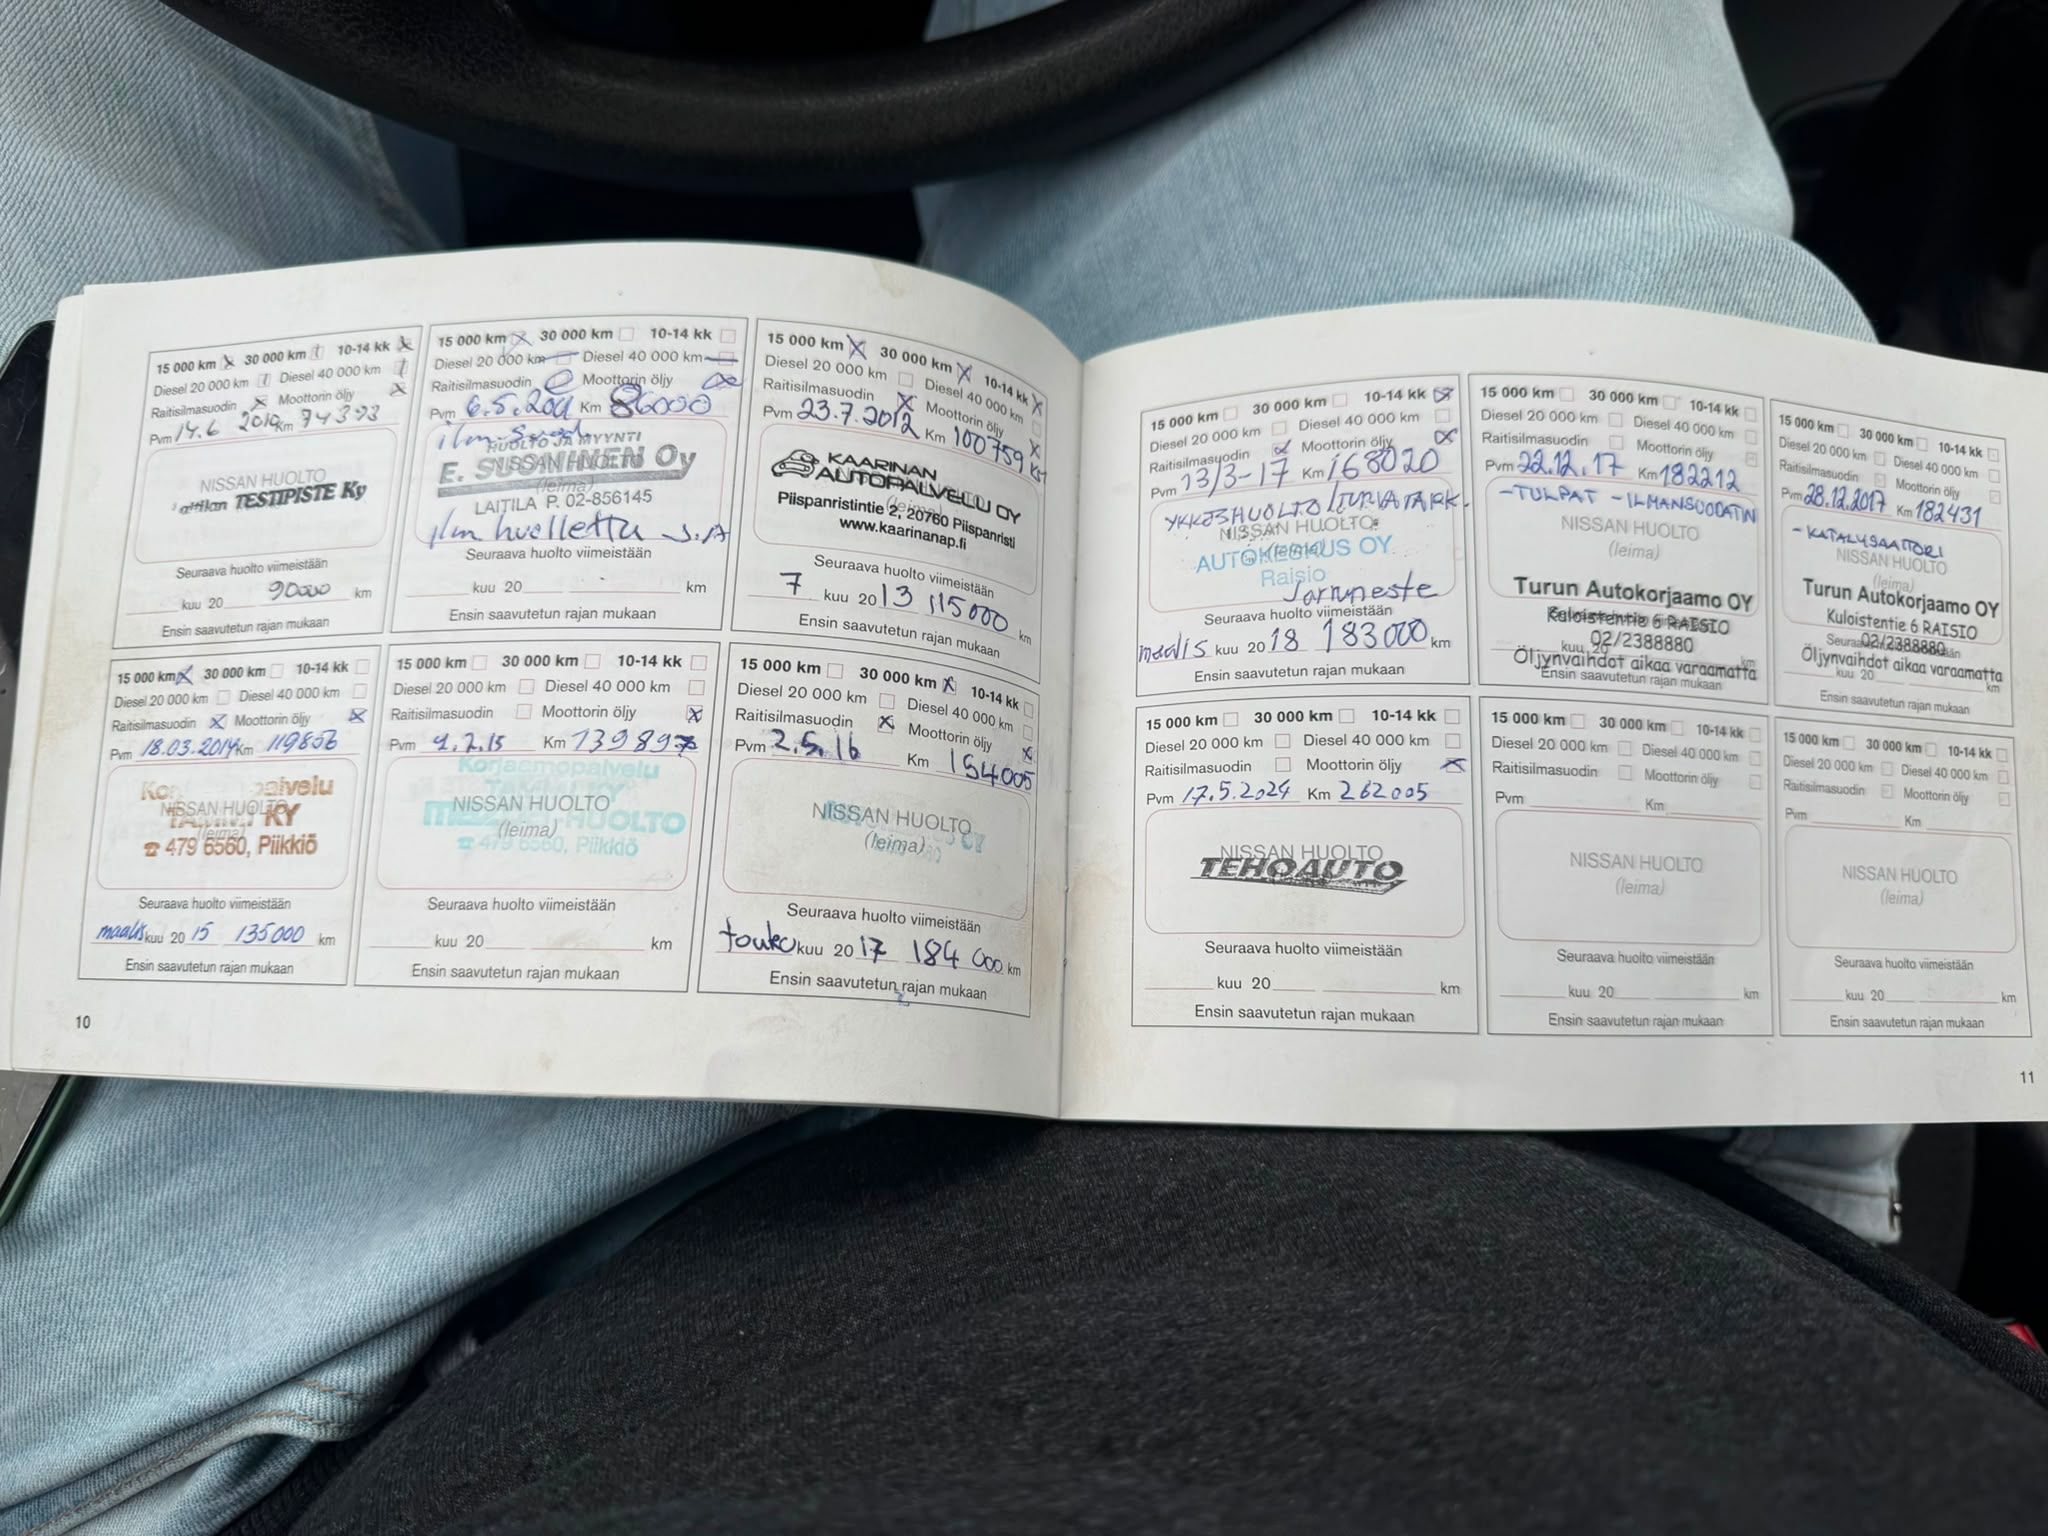 15 000 km x 30 000 km 10-14 kk x
Diesel 20 000 km Diesel 40 000 km
Raitisilmasuodin x Moottorin öljy x
Pvm 14.6 2010 Km 74393
NISSAN HUOLTO
TESTIPISTE Ky
Seuraava huolto viimeistään
kuu 20 90000 km
Ensin saavutetun rajan mukaan
15 000 km x 30 000 km 10-14 kk
Diesel 20 000 km Diesel 40 000 km
Raitisilmasuodin Moottorin öljy
Pvm 6.5.2011 Km 86000
HUOLTO JA MYYNTI
E. Oy
LAITILA P. 02-856145
Seuraava huolto viimeistään
kuu 20 km
Ensin saavutetun rajan mukaan
15 000 km x 30 000 km x 10-14 kk x
Diesel 20 000 km Diesel 40 000 km
Raitisilmasuodin x Moottorin öljy x
Pvm 23.7.2012 Km 100759 km
KAARINAN
AUTOPALVELU OY
Piispanristintie 2, 20760 Piispanristi
www.kaarinanap.fi
Seuraava huolto viimeistään
7 kuu 2013 115000 km
Ensin saavutetun rajan mukaan
15 000 km x 30 000 km 10-14 kk
Diesel 20 000 km Diesel 40 000 km
Raitisilmasuodin x Moottorin öljy x
Pvm 18.03.2014 Km 119856
NISSAN HUOLTO
(leima)
KY
☎ 479 6560, Piikkiö
Seuraava huolto viimeistään
maalis kuu 2015 135000 km
Ensin saavutetun rajan mukaan
15 000 km 30 000 km 10-14 kk
Diesel 20 000 km Diesel 40 000 km
Raitisilmasuodin Moottorin öljy x
Pvm 9.2.15 Km 139897
Korjaamopalvelu
NISSAN HUOLTO
HUOLTO
(leima)
☎ 479 6560, Piikkiö
Seuraava huolto viimeistään
kuu 20 km
Ensin saavutetun rajan mukaan
15 000 km 30 000 km x 10-14 kk
Diesel 20 000 km Diesel 40 000 km
Raitisilmasuodin x Moottorin öljy x
Pvm 2.5.16 Km 154005
NISSAN HUOLTO
(leima)
Seuraava huolto viimeistään
touko kuu 2017 184 000 km
Ensin saavutetun rajan mukaan
10
15 000 km 30 000 km 10-14 kk x
Diesel 20 000 km Diesel 40 000 km
Raitisilmasuodin x Moottorin öljy x
Pvm 13/3-17 Km 168020
YKKÖSHUOLTO/TURVATARK.
NISSAN HUOLTO
AUTOKESKUS OY
Raisio
Jarruneste
Seuraava huolto viimeistään
maalis kuu 2018 183000 km
Ensin saavutetun rajan mukaan
15 000 km 30 000 km 10-14 kk
Diesel 20 000 km Diesel 40 000 km
Raitisilmasuodin Moottorin öljy
Pvm 22.12.17 Km 182212
-TULPAT -ILMANSUODATIN
NISSAN HUOLTO
(leima)
Turun Autokorjaamo OY
Kuloistentie 6 RAISIO
02/2388880
Öljynvaihdot aikaa varaamatta
Ensin saavutetun rajan mukaan
15 000 km 30 000 km 10-14 kk
Diesel 20 000 km Diesel 40 000 km
Raitisilmasuodin Moottorin öljy
Pvm 28.12.2017 Km 182431
-KATALYSAATTORI
NISSAN HUOLTO
(leima)
Turun Autokorjaamo OY
Kuloistentie 6 RAISIO
02/2388880
Öljynvaihdot aikaa varaamatta
kuu 20 km
Ensin saavutetun rajan mukaan
15 000 km 30 000 km 10-14 kk
Diesel 20 000 km Diesel 40 000 km
Raitisilmasuodin Moottorin öljy x
Pvm 17.5.2024 Km 262005
NISSAN HUOLTO
TEHOAUTO
Seuraava huolto viimeistään
kuu 20 km
Ensin saavutetun rajan mukaan
15 000 km 30 000 km 10-14 kk
Diesel 20 000 km Diesel 40 000 km
Raitisilmasuodin Moottorin öljy
Pvm Km
NISSAN HUOLTO
(leima)
Seuraava huolto viimeistään
kuu 20 km
Ensin saavutetun rajan mukaan
15 000 km 30 000 km 10-14 kk
Diesel 20 000 km Diesel 40 000 km
Raitisilmasuodin Moottorin öljy
Pvm Km
NISSAN HUOLTO
(leima)
Seuraava huolto viimeistään
kuu 20 km
Ensin saavutetun rajan mukaan
11